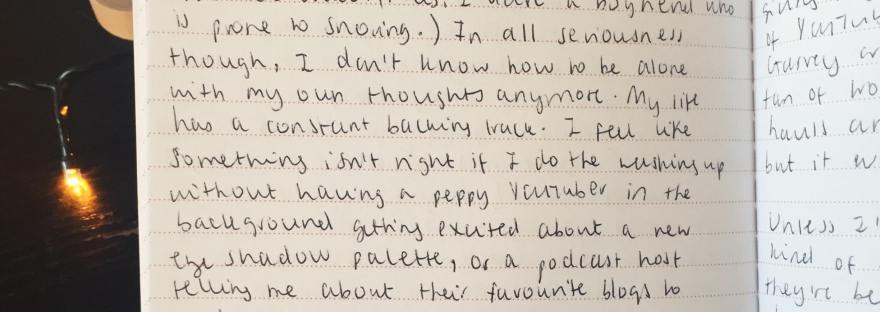 I have a boyfriend who
is prone to snoring.) In all seriousness
though, I don't know how to be alone
with my own thoughts anymore. My life
has a constant backing track. I feel like
something isn't right if I do the washing up
without having a peppy YouTuber in the
background getting excited about a new
eye shadow palette, or a podcast host
telling me about their favourite blogs to
of YouTub
hauls ar
but it w
Unless I'
kind of
they're be